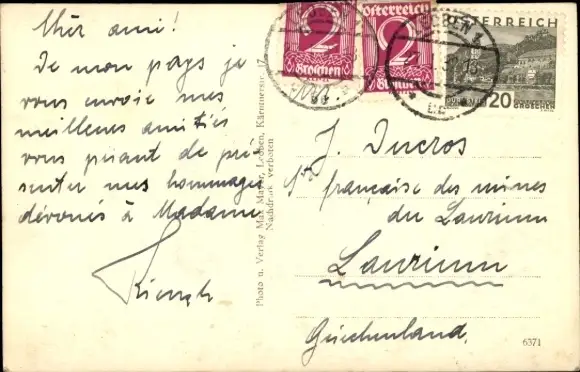 Cher ami!
De mon pays je
vous envoie mes
meilleures amitiés
vous priant de pré-
senter mes hommages
dévoués à Madame
Photo u. Verlag Max Mayer, Leoben, Kärntnerstr. 17
Nachdruck verboten
2
Groschen
Österreich
2
Groschen
ÖSTERREICH
20
GROSCHEN
J. Ducros
française des mines
du Laurium
Laurium
Griechenland.
6371